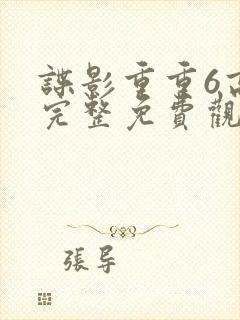 諜影重重6高
完整免費觀
張导